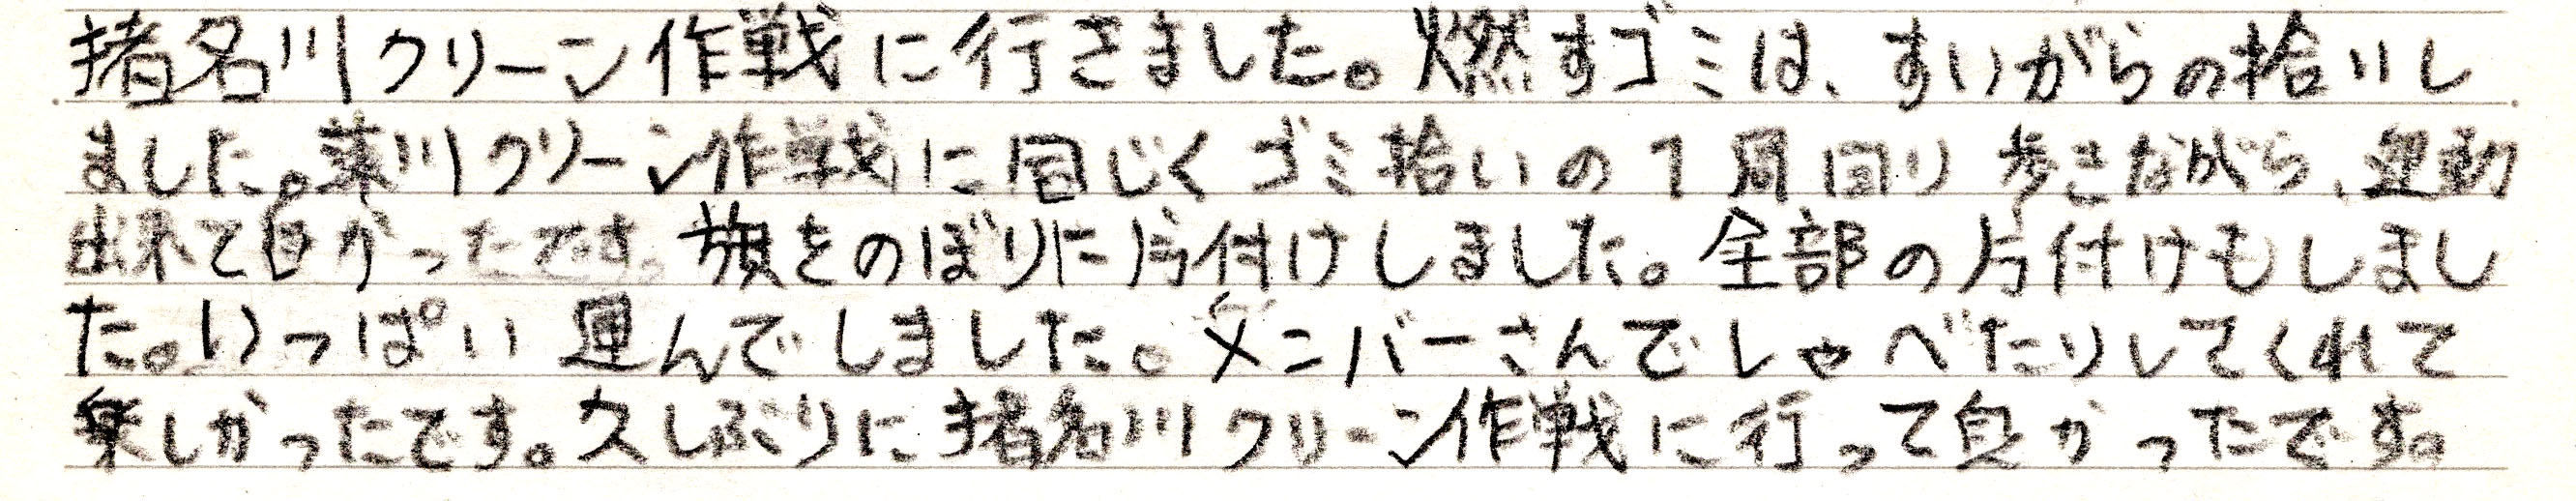 猪名川クリーン作戦に行きました。燃すゴミは、すいがらの拾いし
ました。藻川クリーン作戦に同じくゴミ拾いの1周回り歩きながら、運動
出来て良かったです。旗をのぼりに片付けしました。全部の片付けもしまし
た。いっぱい運んでしました。メンバーさんでしゃべたりしてくれて
楽しかったです。久しぶりに猪名川クリーン作戦に行って良かったです。